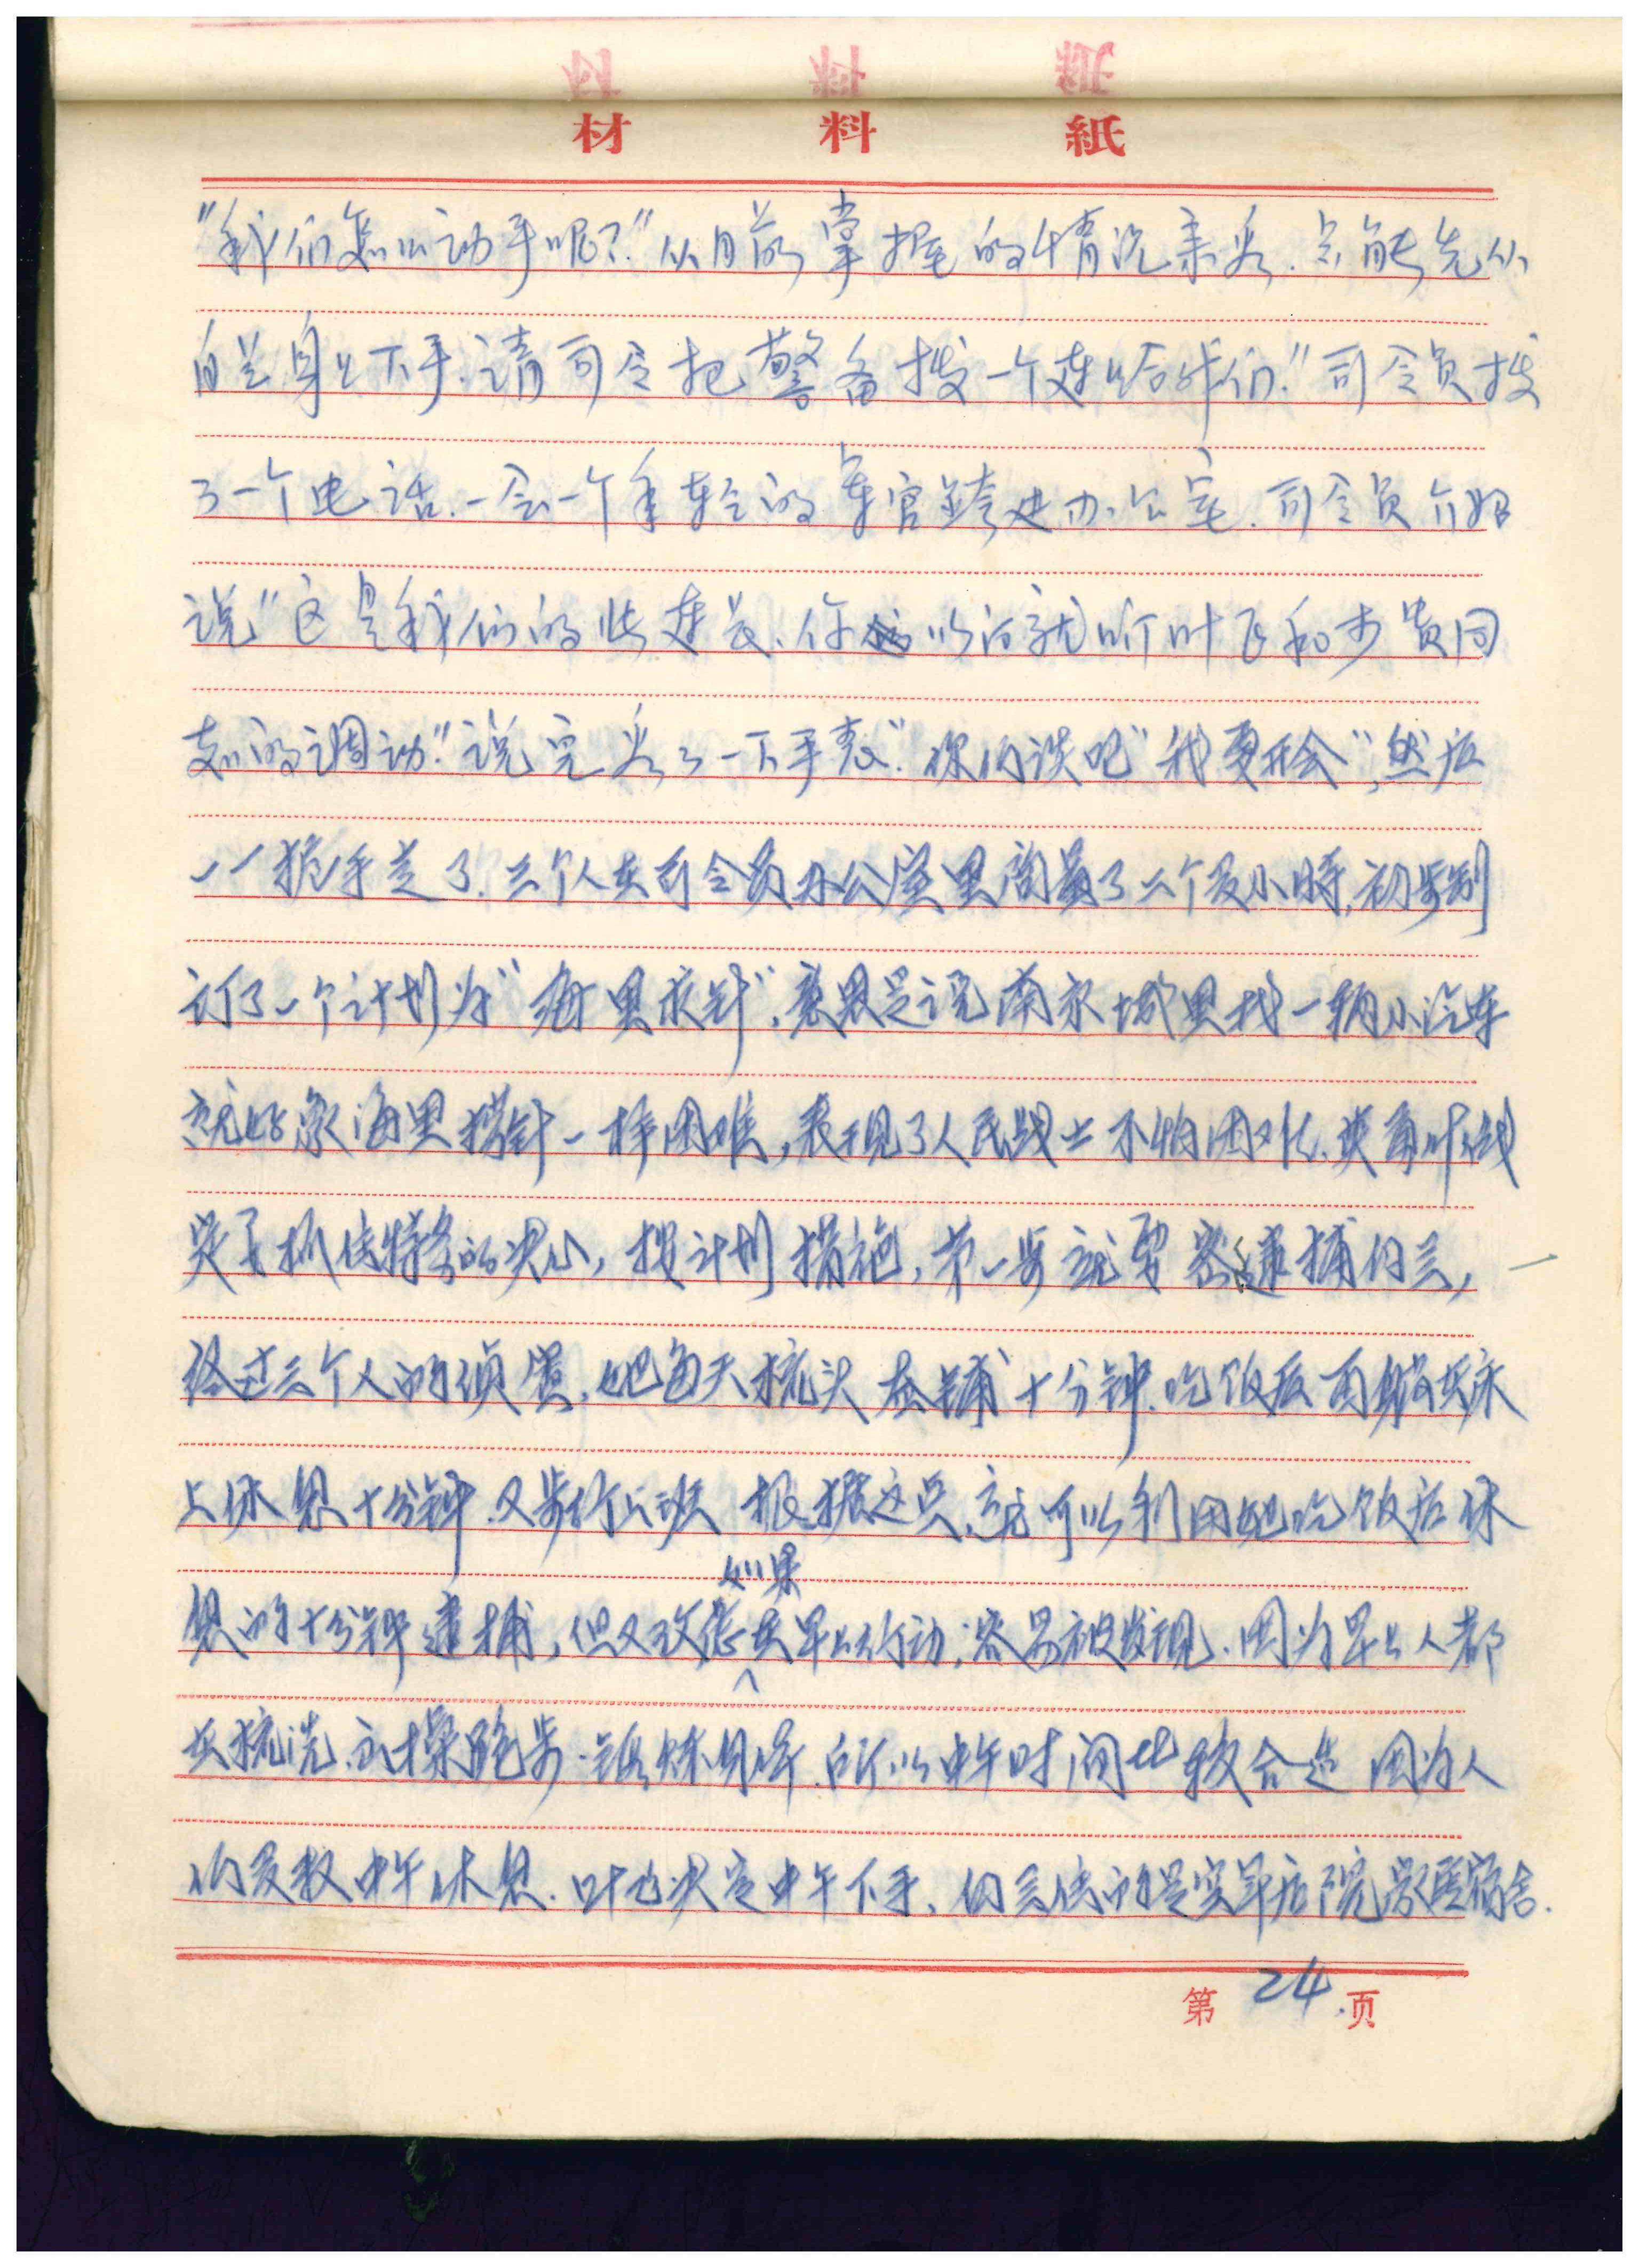 材料紙
"我们怎么动手呢?"从目前掌握的情况来看.只能先从
白兰身上下手.请司令把警备拨一个连给我们."司令员拨
了一个电话.一会一个年轻的军官跨进办公室.司令员介绍
说"这是我们的 连长.你以后就听叶飞和步贵同
志的调动."说完看了一下手表."你们谈吧"我要开会",然后
一一握手走了.三个人在司令员办公室里商量了二个多小时,初步制
订了一个计划为"海里 针",意思是说南京城里找一辆小汽车
就好象海里捞针一样困难,表现了人民战士不怕困难.
抓住特务的决心,按计划措施,第一步就要密逮捕白兰,
经过三个人的侦 ,她每天梳头 十分钟.吃饭后 躺在床
上休息十分钟.又步行上班 根据这点,就可以利用她吃饭后休
如果
息的十分钟逮捕,但又考虑在早上行动;容易被发现.因为早上人都
在梳洗. 操跑步.锻炼身体.所以中午时间比较合适 因为人
们多数中午休息.叶飞决定中午下手,白兰住的是空军后 院 宿舍.
第24.页